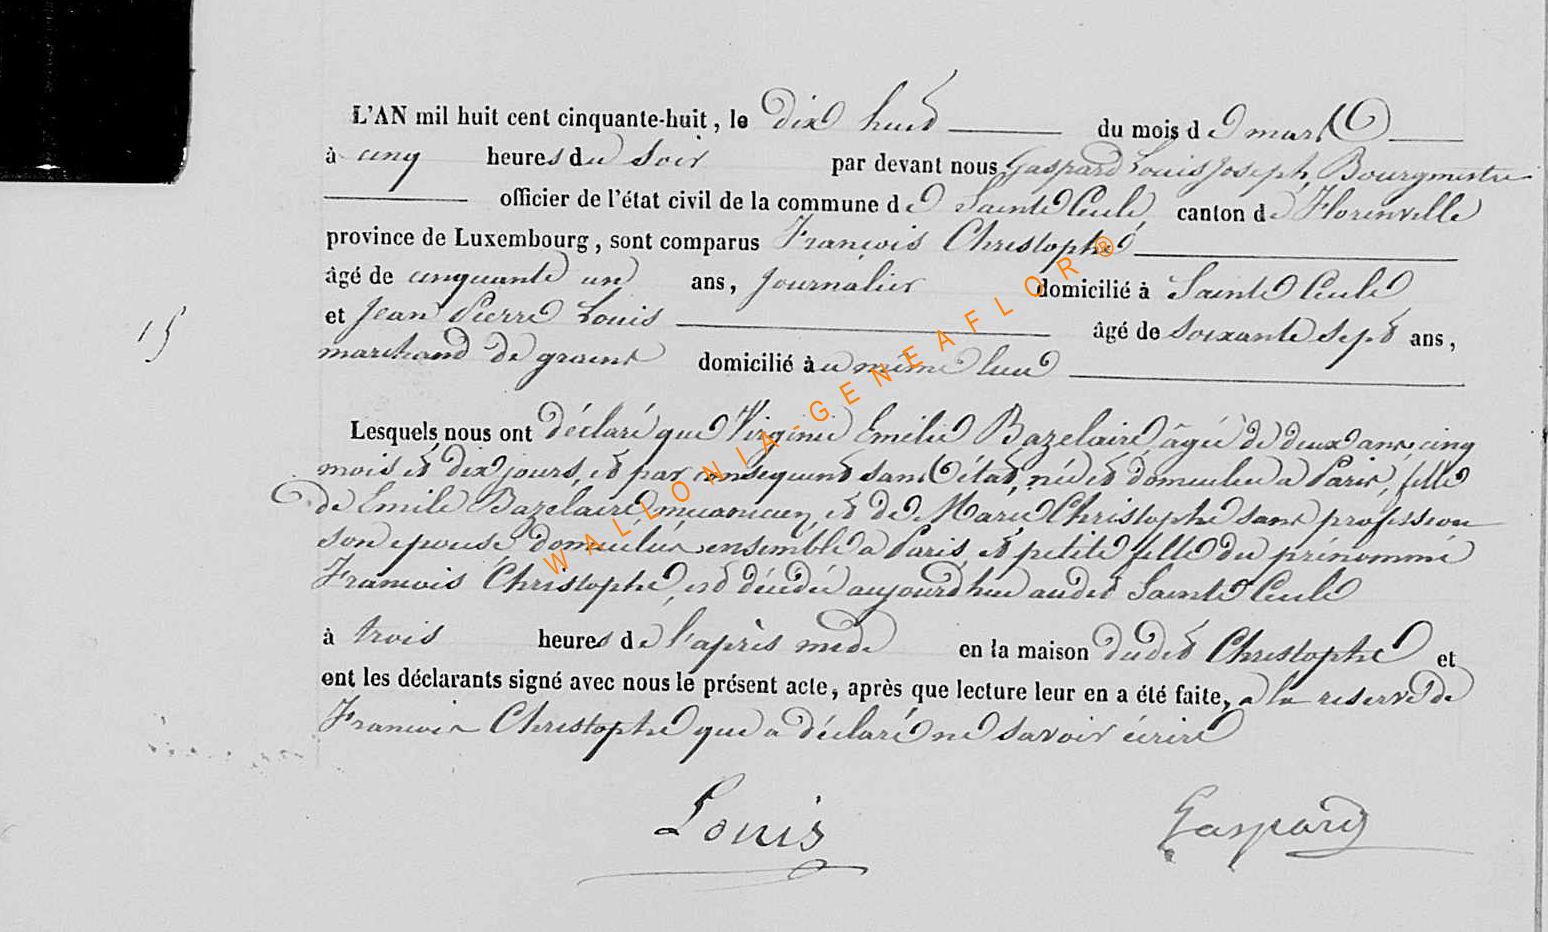 L'AN mil huit cent cinquante-huit, le dix huit du mois de mars
à cinq heures du soir par devant nous Gaspard Louis Joseph, Bourgmestre
officier de l'état civil de la commune de Sainte Cecile, canton de Florenville
province de Luxembourg, sont comparus François Christophe
âgé de cinquante un ans, journalier domicilié à Sainte Cecile
et Jean Pierre Louis âgé de soixante sept ans,
15
marchand de grains domicilié au même lieu
Lesquels nous ont déclaré que Virginie Emilie Bazelaire, âgée de deux ans, cinq
mois et dix jours, et par conséquent sans état, née et domiciliée à Paris, fille
de Emile Bazelaire mécanicien, et de Marie Christophe sans profession
son épouse, domiciliés ensemble à Paris, et petite fille du prénommé
François Christophe, est décédée aujourd'hui audit Sainte Cecile
à trois heures de l'après midi en la maison dudit Christophe et
ont les déclarants signé avec nous le présent acte, après que lecture leur en a été faite, a la reserve de
François Christophe que a déclaré ne savoir écrire
Louis Gaspard
WALLONIA-GENEAFLOR®